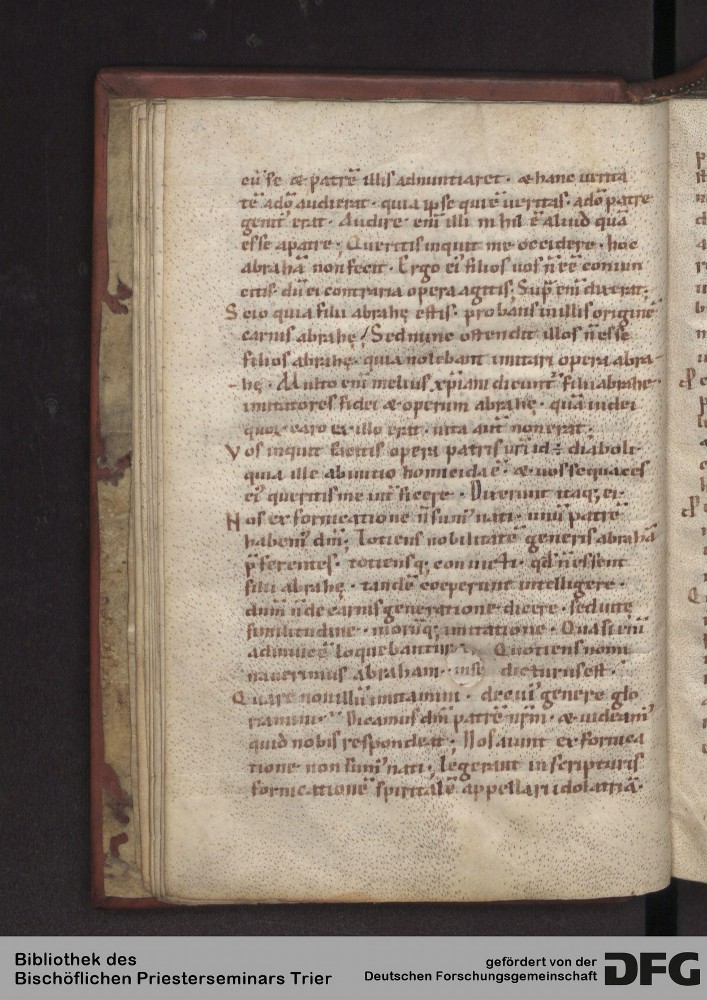 eū se & patrē illis adnuntiaret · & hanc verita
tē a dō audierat · quia ipse qui ē veritas · a dō patre
genit' erat · Audire enī illi nihil ē aliud quā
esse a patre ; Queritis inquit me occidere · hoc
abrahā non fecit · Ergo ei' filios vos n̄ eē convin
citis · dū ei contraria opera agitis ; Sup̄ enī dixerat ;
Scio quia filii abrahę estis · probans in illis originē
carnis abrahę / Sed nunc ostendit illos n̄ esse
filios abrahę · quia nolebant imitari opera abra-
-hę · Multo enī melius xp̄iani dicunt' filii abrahę ·
imitatores fidei & operum abrahę · quā iudei
quor' caro ex illo erat · vita aut̄ non erat ;
Vos inquit facitis opera patris vr̄i id ÷ diaboli ·
quia ille ab initio homicida ē · & vos sequaces
ei' queritis me int̄ficere · Dixerunt itaq; ei ·
Nos ex fornicatione n̄ sum' nati · unū patrē
habem' dm̄ ; Totiens nobilitatē generis abrahā
p̄ferentes · totiensq; convicti · qd̄ n̄ essent
filii abrahę · tandē coeperunt intelligere ·
dnm̄ n̄ de carnis generatione dicere · sed vitę
similitudine · morūq; imitatione · Quasi enī
ad invicē loquebantur Quotiens nomi
naverimus abraham · dicturus est ·
Quare non illū imitamini · de cui' genere glo
riamini · Dicamus dm̄ patrē nr̄m · & videam'
quid nobis respondeat ; Nos aiunt ex fornica
tione non sum' nati ; Legerant in scripturis
fornicationē spiritalē appellari idolatriā ·
Bibliothek des
Bischöflichen Priesterseminars Trier
gefördert von der
Deutschen Forschungsgemeinschaft
DFG